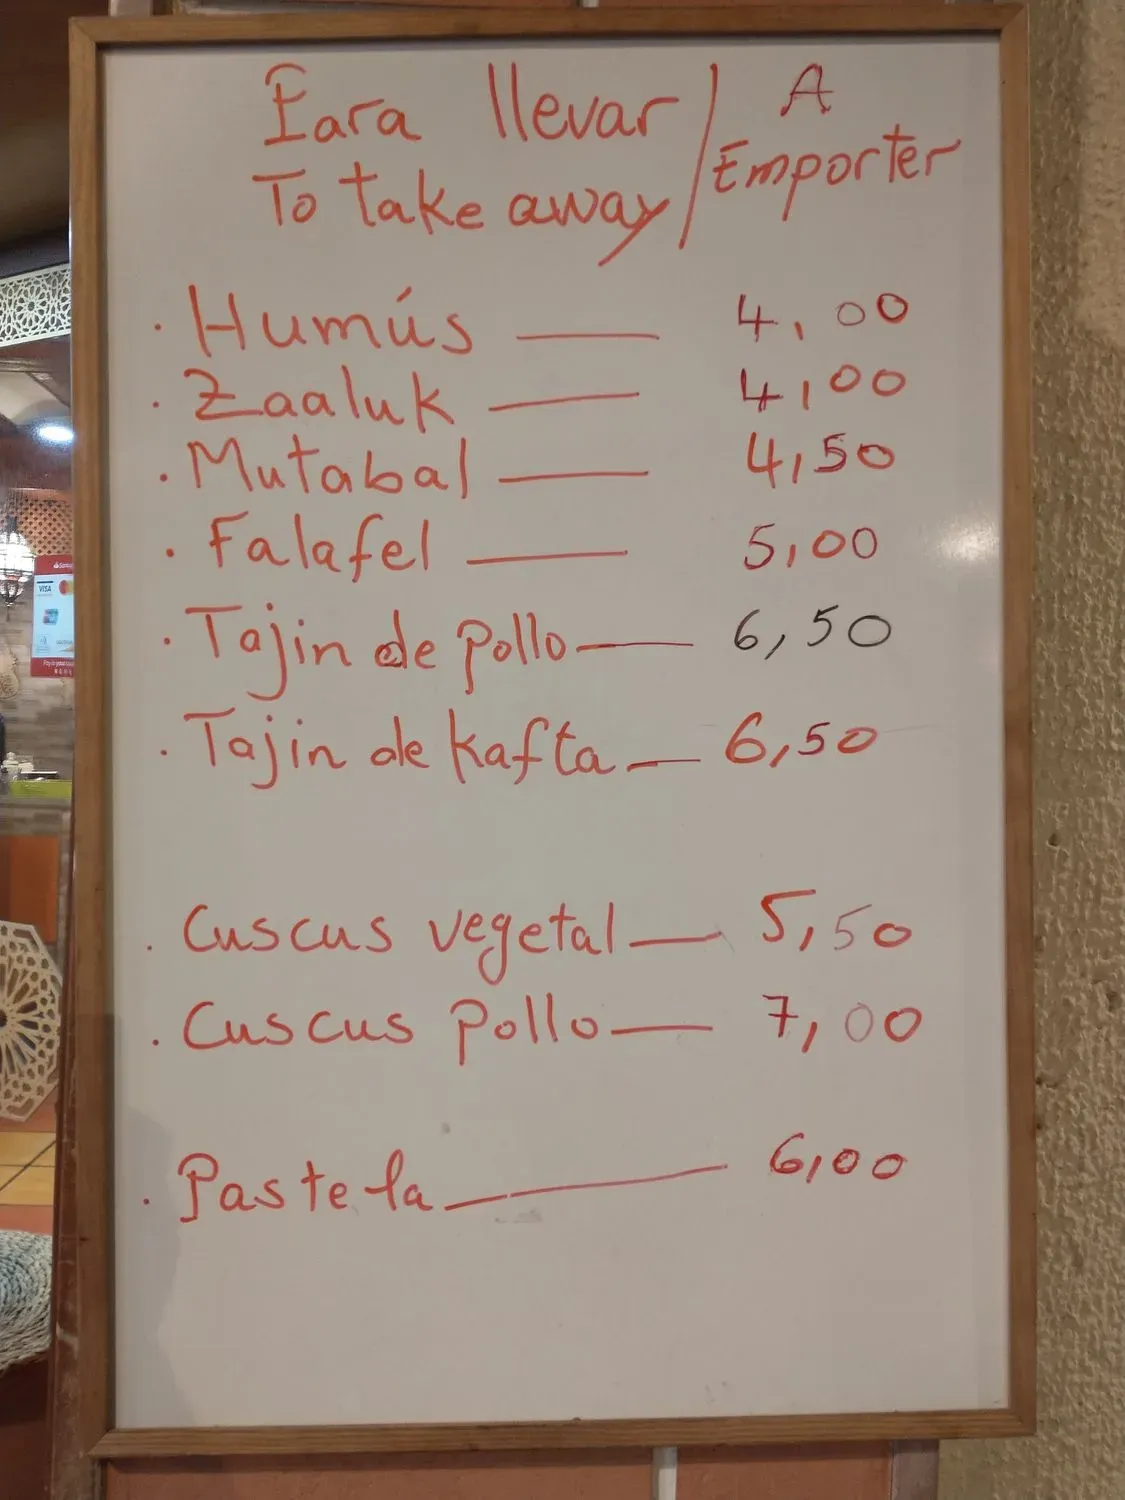 Para llevar / A
To take away / Emporter
. Humús — 4,00
. Zaaluk — 4,00
. Mutabal — 4,50
. Falafel — 5,00
. Tajin de pollo — 6,50
. Tajin de kafta — 6,50
. Cuscus vegetal — 5,50
. Cuscus pollo — 7,00
. Pastela — 6,00
VISA